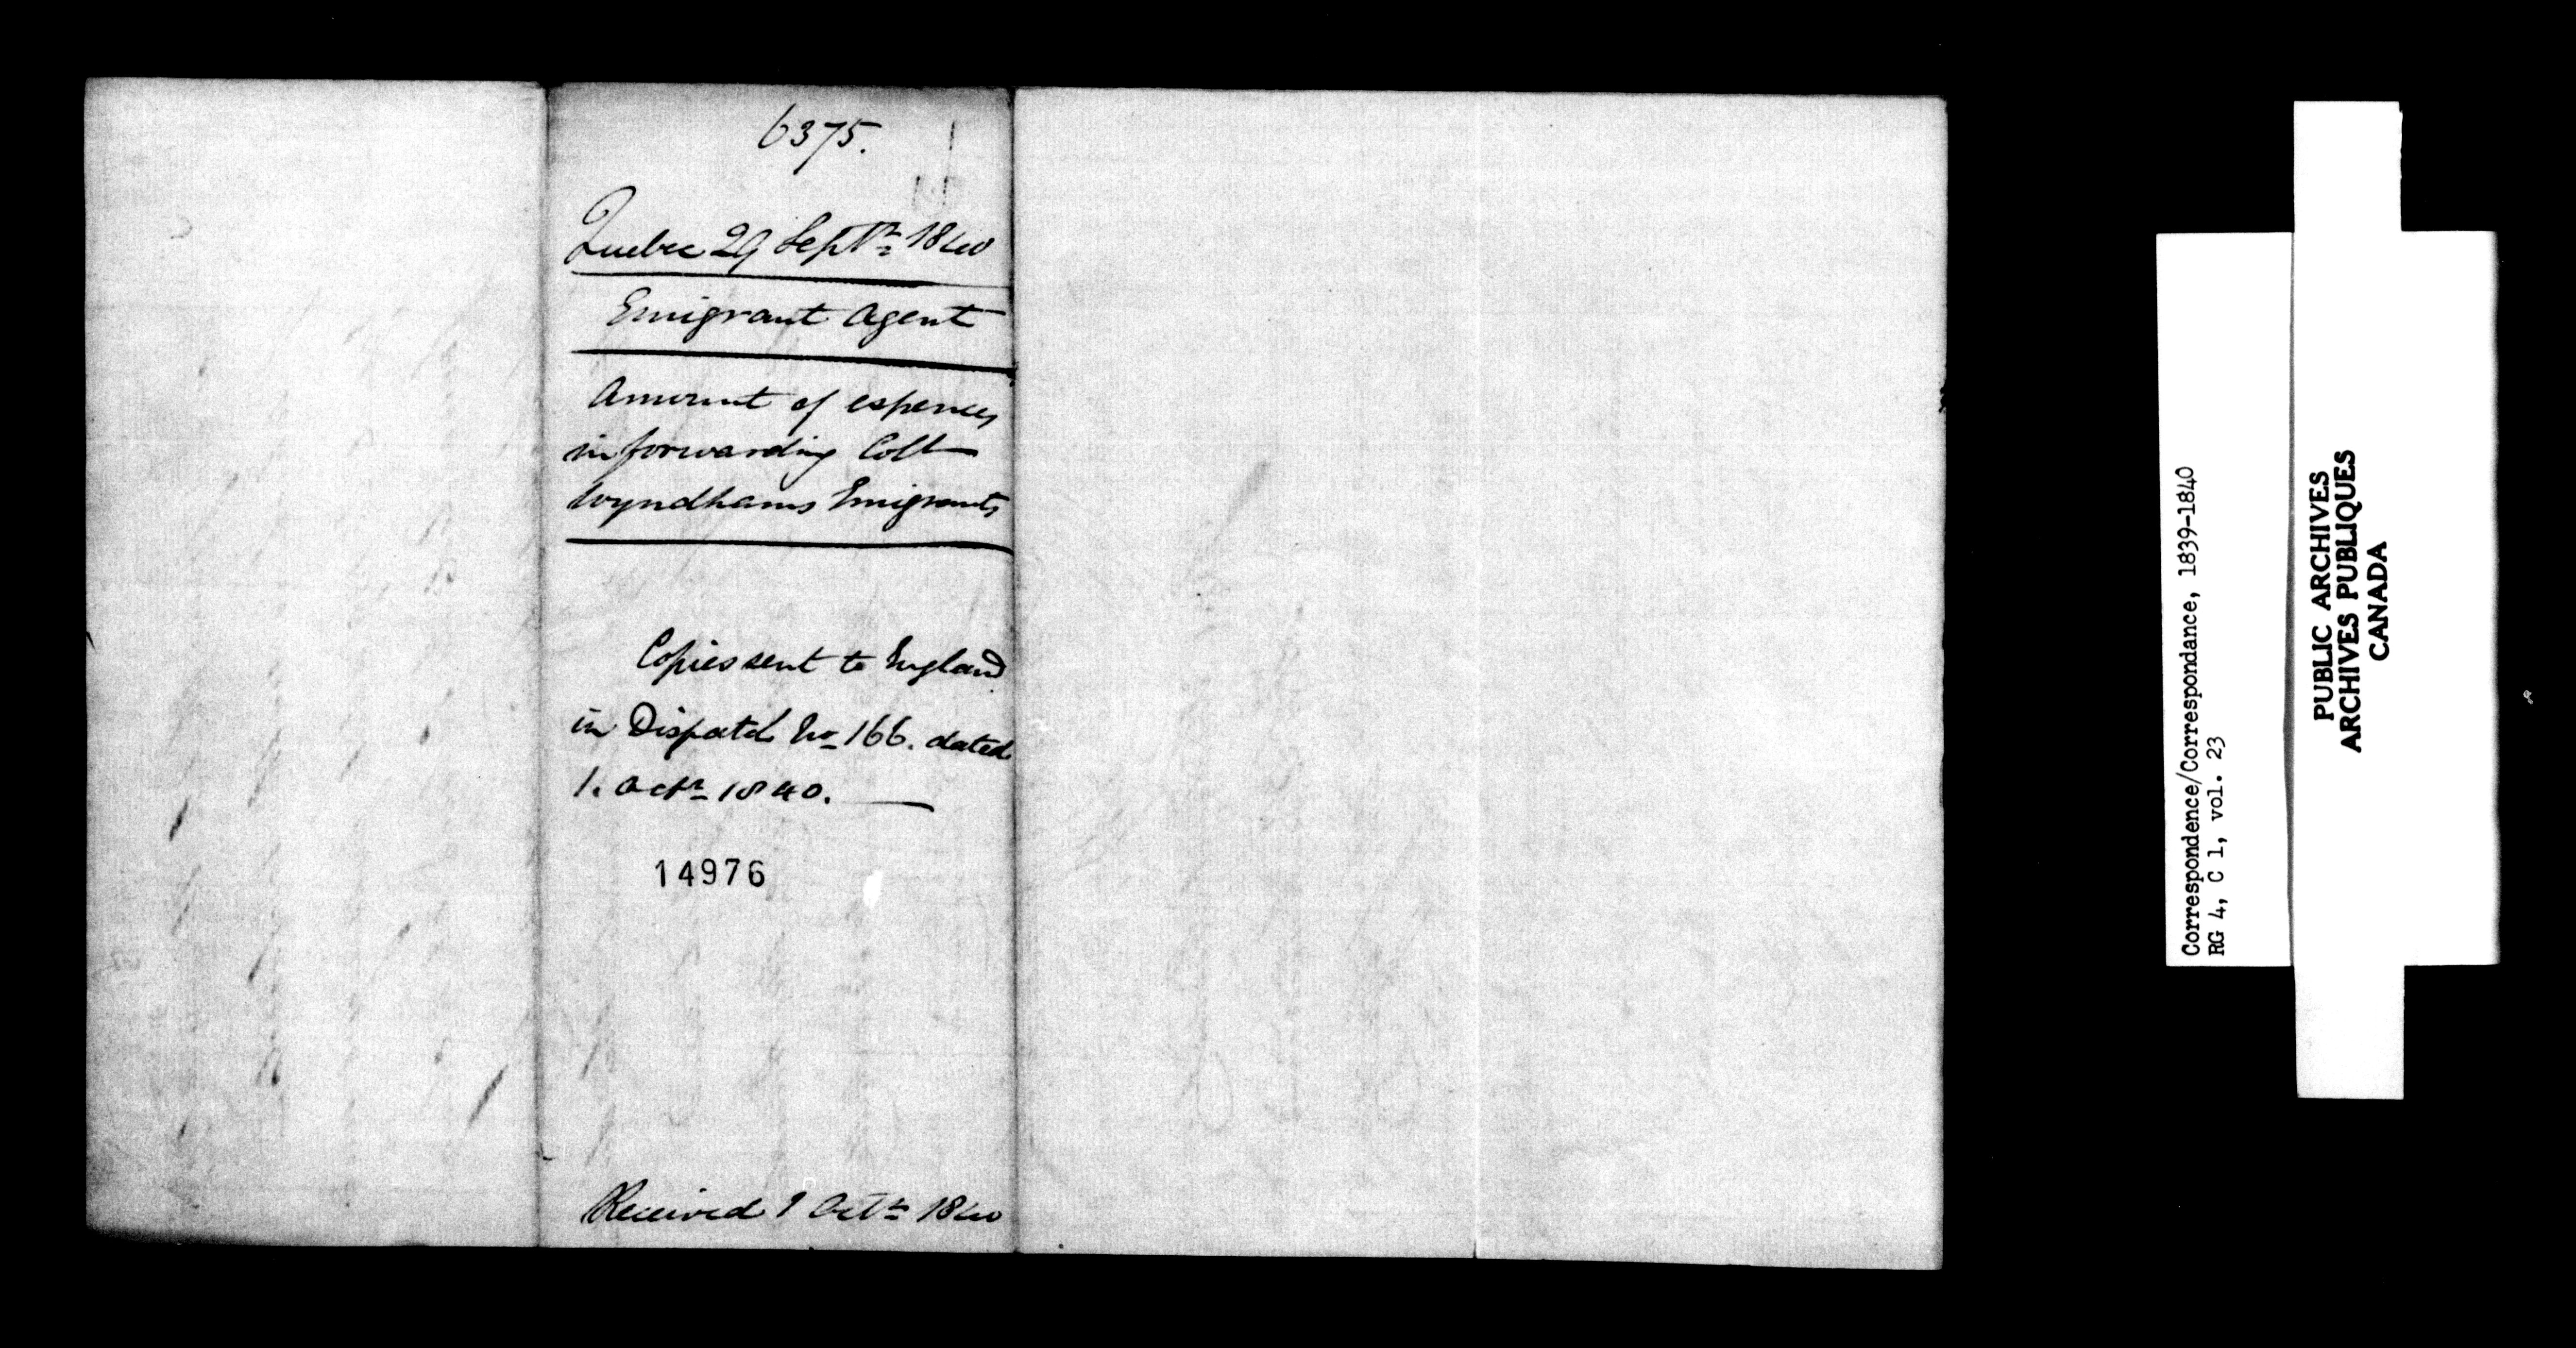 6375.
Quebec 29 Septr 1840
Emigrant Agent
Amount of expences
in forwarding Coll
Wyndhams Emigrants
Copies sent to England
in Dispatch No 166. dated
1. Octr 1840.
14976
Received 1 Octr 1840
Correspondence/Correspondance, 1839-1840
RG 4, C 1, vol. 23
PUBLIC ARCHIVES
ARCHIVES PUBLIQUES
CANADA